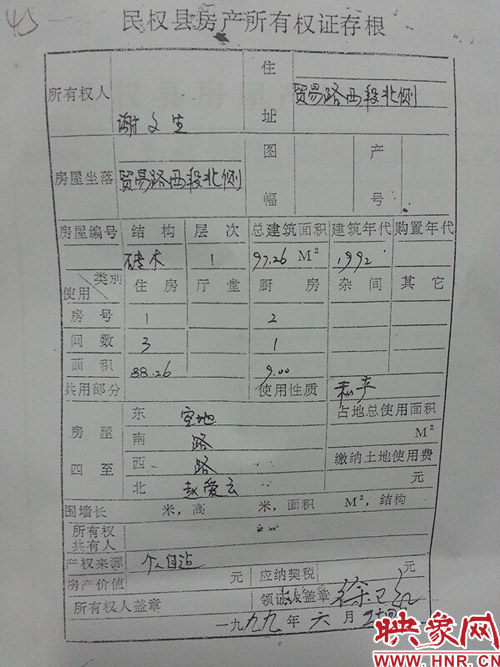 45
民权县房产所有权证存根
所有权人 谢文生 住址 贸易路西段北侧
房屋坐落 贸易路西段北侧 图幅 产号
房屋编号 结构 层次 总建筑面积 建筑年代 购置年代
砖木 1 97.26 M² 1992
类别 使用 住房 厅堂 厨房 杂间 其它
房号 1 2
间数 3 1
面积 88.26 9.00
共用部分 使用性质 私产
房屋四至 东 空地 占地总使用面积
南 路 M²
西 路 缴纳土地使用费
北 赵爱云 元
围墙长 米，高 米，面积 M²，结构
所有权
共有人
产权来源 个人自造 元 应纳契税 元
房产价值
所有权人盖章 领证人盖章
一九九九年六月
映象网
WWW.HNR.CN